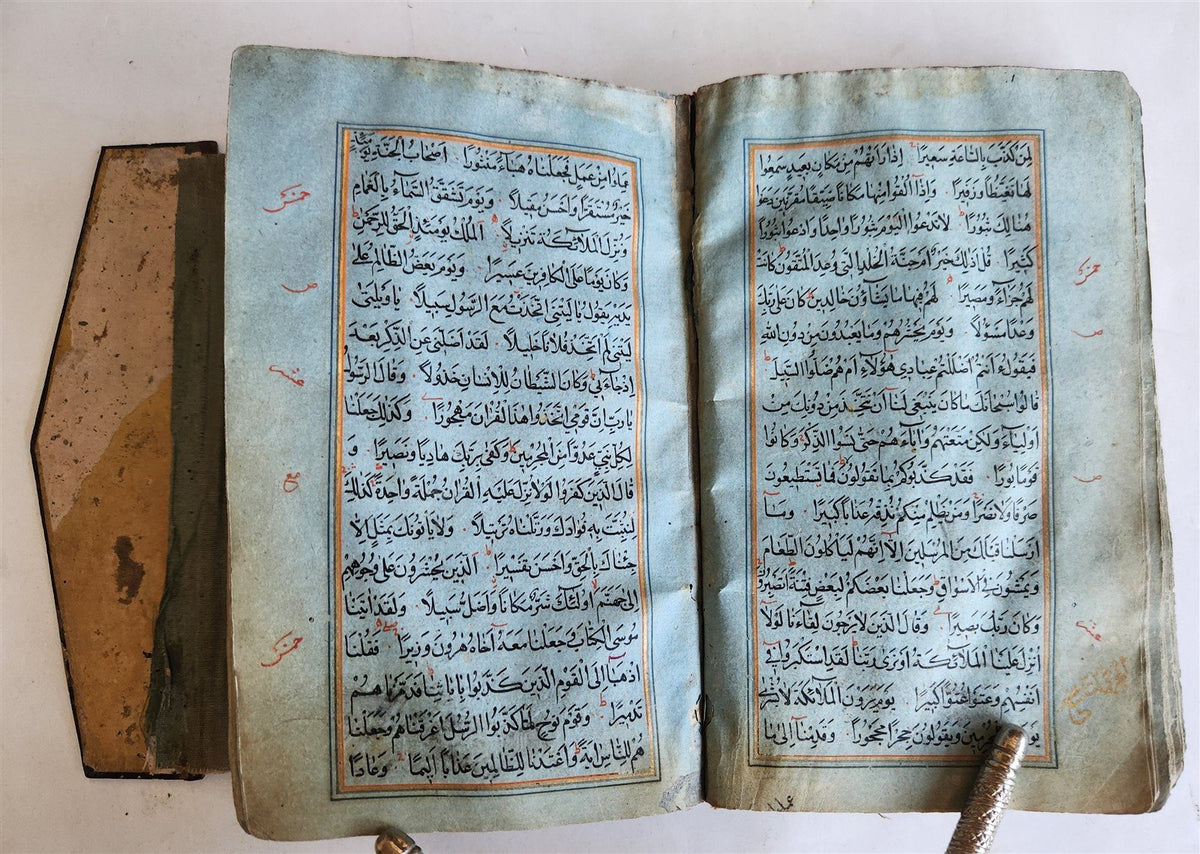 لمن كذب بالساعة سعيرا اذا راتهم من مكان بعيد سمعوا
لها تغيظا وزفيرا واذا القوا منها مكانا ضيقا مقرنين دعوا
هنالك ثبورا لا تدعوا اليوم ثبورا واحدا وادعوا ثبورا
كثيرا قل اذلك خير ام جنة الخلد التى وعد المتقون كانت
لهم جزاء ومصيرا لهم فيها ما يشاؤن خالدين كان على ربك
وعدا مسؤلا ويوم يحشرهم وما يعبدون من دون الله
فيقول ءانتم اضللتم عبادى هؤلاء ام هم ضلوا السبيل
قالوا سبحانك ما كان ينبغى لنا ان نتخذ من دونك من
اولياء ولكن متعتهم واباءهم حتى نسوا الذكر وكانوا
قوما بورا فقد كذبوكم بما تقولون فما تستطيعون
صرفا ولا نصرا ومن يظلم منكم نذقه عذابا كبيرا وما
ارسلنا قبلك من المرسلين الا انهم لياكلون الطعام
ويمشون فى الاسواق وجعلنا بعضكم لبعض فتنة اتصبرون
وكان ربك بصيرا وقال الذين لا يرجون لقاءنا لولا
انزل علينا الملائكة او نرى ربنا لقد استكبروا فى
انفسهم وعتوا عتوا كبيرا يوم يرون الملائكة لا بشرى
ويقولون حجرا محجورا وقدمنا الى ما
عملوا من عمل فجعلناه هباء منثورا اصحاب الجنة يومئذ
خير مستقرا واحسن مقيلا ويوم تشقق السماء بالغمام
ونزل الملائكة تنزيلا الملك يومئذ الحق للرحمن
وكان يوما على الكافرين عسيرا ويوم يعض الظالم على
يديه يقول ياليتنى اتخذت مع الرسول سبيلا ياويلتى
ليتنى لم اتخذ فلانا خليلا لقد اضلنى عن الذكر بعد
اذ جاءنى وكان الشيطان للانسان خذولا وقال الرسول
يارب ان قومى اتخذوا هذا القران مهجورا وكذلك جعلنا
لكل نبى عدوا من المجرمين وكفى بربك هاديا ونصيرا و
قال الذين كفروا لولا نزل عليه القران جملة واحدة كذلك
لنثبت به فؤادك ورتلناه ترتيلا ولا ياتونك بمثل الا
جئناك بالحق واحسن تفسيرا الذين يحشرون على وجوههم
الى جهنم اولئك شر مكانا واضل سبيلا ولقد اتينا
موسى الكتاب وجعلنا معه اخاه هرون وزيرا فقلنا
اذهبا الى القوم الذين كذبوا باياتنا فدمرناهم
تدميرا وقوم نوح لما كذبوا الرسل اغرقناهم وجعلنا
هم للناس اية واعتدنا للظالمين عذابا اليما وعادا